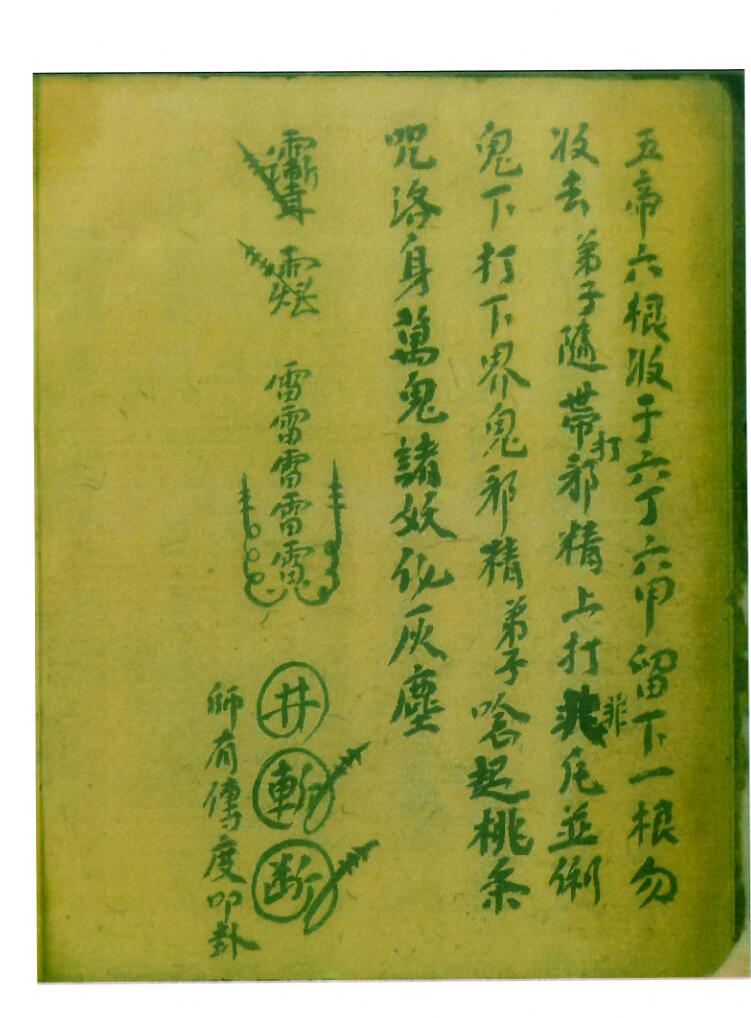 五帝六根收于六丁六甲留下一根勿
收去弟子隨帶打邪精上打非㐵並俐
鬼下打下界鬼邪精弟子唸起桃条
咒洛身萬鬼諸妖化灰塵
雷雷雷雷雷
井斬断
師有傳度叩卦